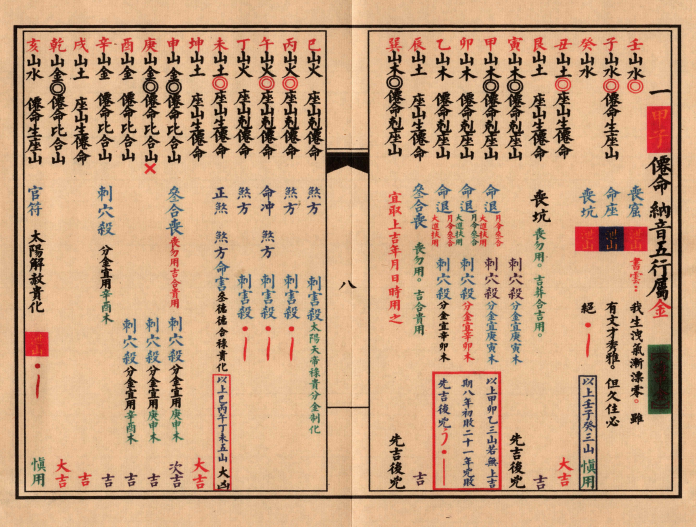 一 甲子 僊命 納音五行屬金
壬山水◎ 喪窟 洩山 書雲：我生洩氣漸漂零。雖
子山水◎僊命生座山 命座 洩山 有文才秀雅。但久住必
癸山水 喪坑 洩山 絕 以上壬子癸三山 慎用
丑山土◎座山生僊命 大吉
艮山土 座山生僊命 喪坑 喪勿用。吉葬合吉用。 吉
寅山木◎僊命剋座山 刺穴殺 分金宜庚寅木 先吉後兇
甲山木◎僊命剋座山 命退 月令無合大運扶用 刺穴殺 分金宜庚寅木 以上甲卯乙三山若無上吉
卯山木 僊命剋座山 命退 月令無合大運扶用 刺穴殺 分金宜辛卯木 期八年初敗二十一年兇敗
乙山木 僊命剋座山 命退 月令無合大運扶用 刺穴殺 分金宜辛卯木 先吉後兇
辰山土 座山生僊命 叄合喪 喪勿用。吉合貴用 吉
巽山木◎僊命剋座山 宜取上吉年月日時用之 先吉後兇
八
巳山火 座山剋僊命 煞方 刺害殺 太陽天帝祿貴分金制化
丙山火◎座山剋僊命 煞方 刺害殺
午山火◎座山剋僊命 命冲 煞方 刺害殺
丁山火 座山剋僊命 煞方 刺害殺
未山土◎座山生僊命 正煞 煞方 命害 叄德德合祿貴化 以上巳丙午丁未五山 大凶
坤山土 座山生僊命 大吉
申山金◎僊命比合山 叄合喪 喪勿用吉合貴用 刺穴殺 分金宜用庚申木 次吉
庚山金◎僊命比合山 刺穴殺 分金宜用庚申木 吉
酉山金 僊命比合山 刺穴殺 分金宜用辛酉木 吉
辛山金 僊命比合山 刺穴殺 分金宜用辛酉木 吉
戌山土 座山生僊命 吉
乾山金◎僊命比合山 大吉
亥山水 僊命生座山 官符 太陽解赦貴化 洩山 慎用